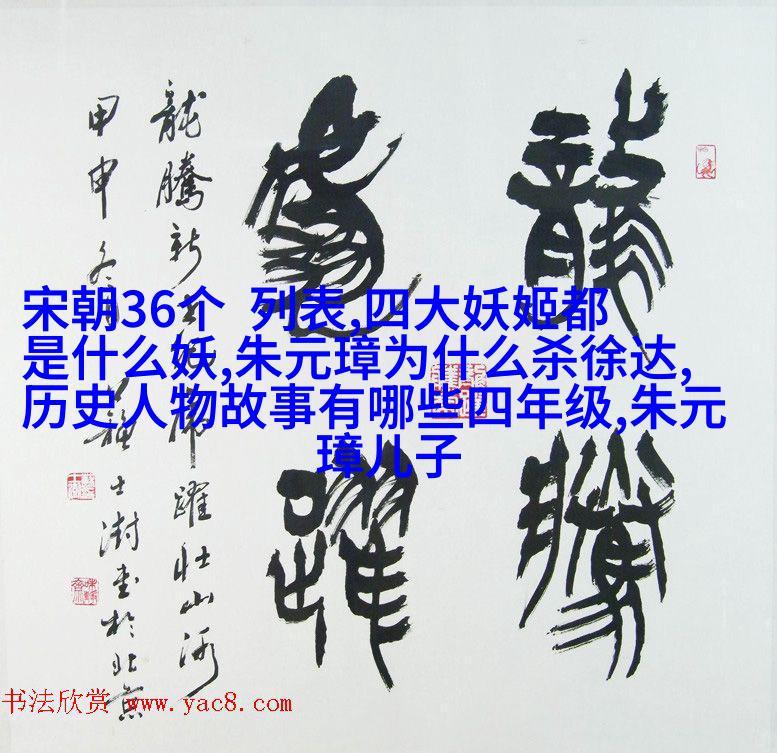 龍騰
虎躍
龍騰新
虎躍壯山河
甲申冬月
士澍书於北京
宋朝36个 列表,四大妖姬都
是什么妖,朱元璋为什么杀徐达,
历史人物故事有哪些四年级,朱元
璋儿子
书法欣赏 www.yac8.com